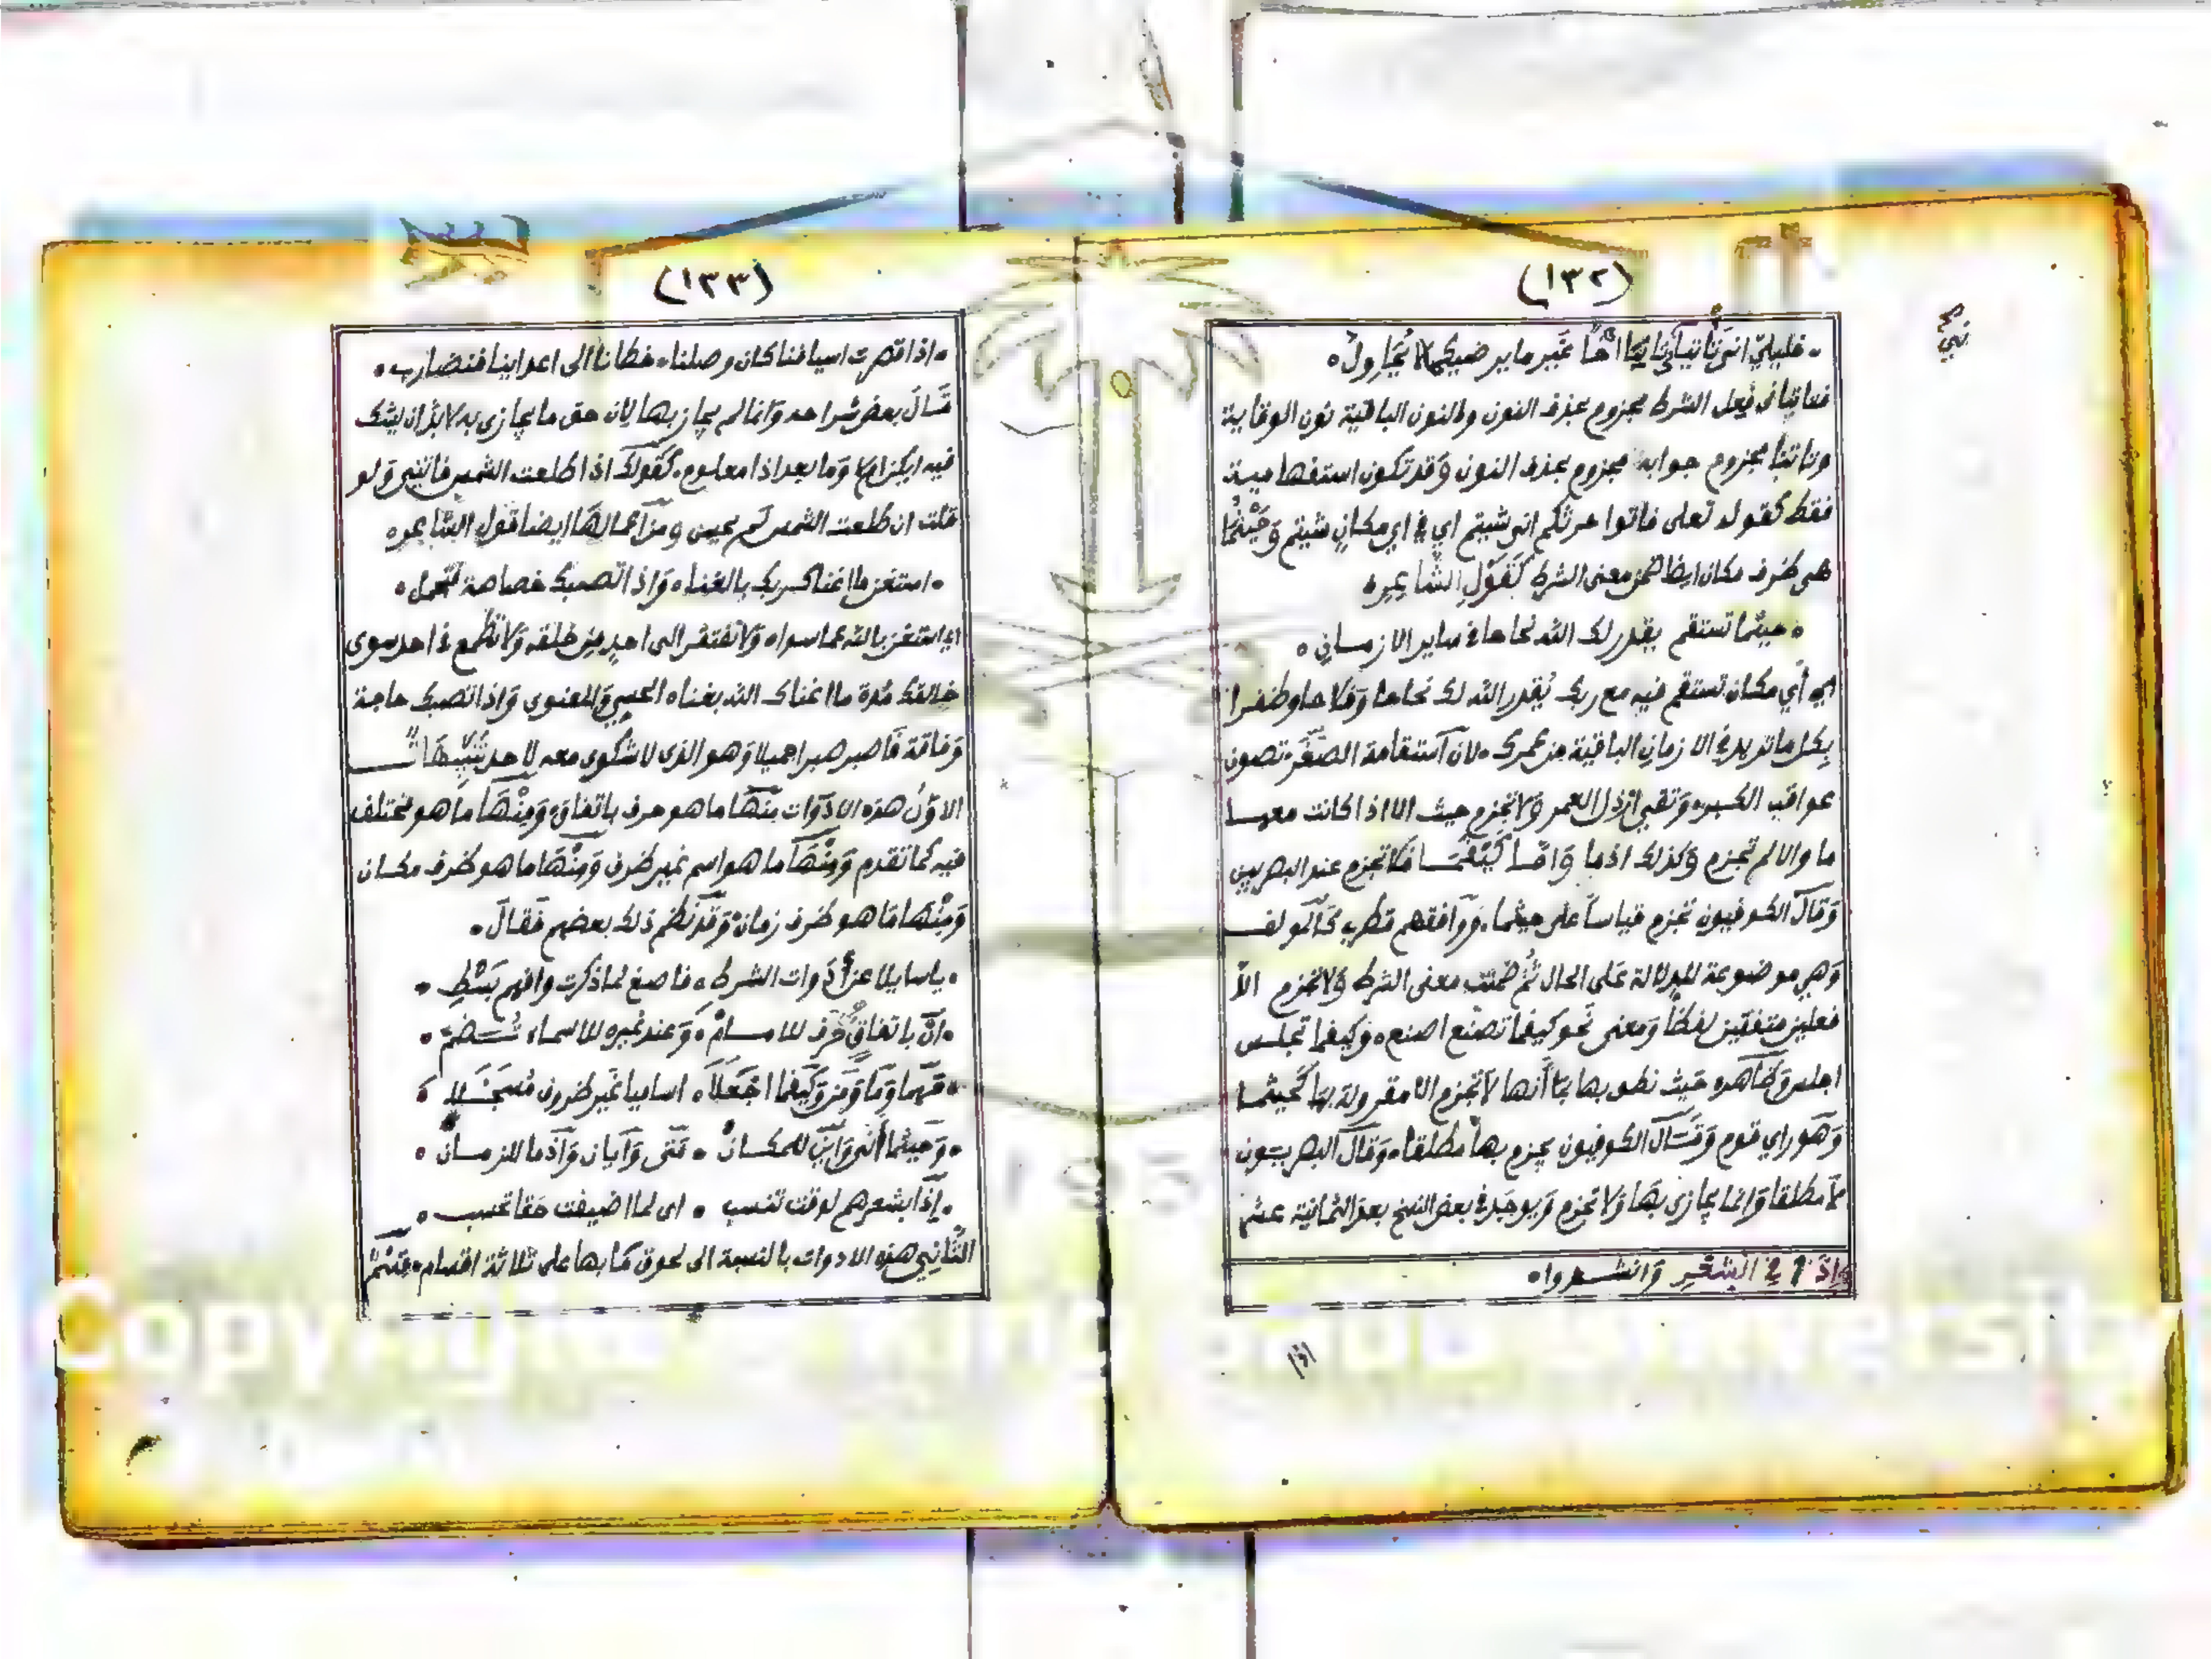 (١٣٢)
• خليليّ انى تأتياني تأتيا اخا غير ما يرضيكما لا يحاول •
فتأتياني فعل الشرط مجزوم بحذف النون والنون الباقية نون الوقاية
وتاتيا مجزوم جوابه مجزوم بحذف النون وقد تكون استفهامية
فقط كقوله تعلى فاتوا حرثكم انى شيتم اي في اي مكان شيتم وحيثما
هي ظرف مكان ايضا ضمن معنى الشرط كقول الشاعر •
• حيثما تستقم يقدر لك الله نجاحا في سابر الازمان •
اي أي مكان تستقم فيه مع ربك يقدر الله لك نجاحا وفلاحا وظفرا
بكل ما تريد في الازمان الباقية من عمرك • لان استقامة الصغر تصون
عواقب الكبر • وتقي ارذل العمر ولا تجزم حيث الا اذا كانت معها
ما والا لم تجزم وكذلك اذما وامّا كيفما فلا تجزم عند البصريين
وقال الكوفيون تجزم قياسا على حيثما • ووافقهم قطرب كالمولف
وهي موضوعة للدلالة على الحال ثم ضمنت معنى الشرط ولا تجزم الا
فعلين متفقين لفظا ومعنى نحو كيفما تصنع اصنع • وكيفما تجلس
اجلس وظاهره حيث نطق بها بما أنها لا تجزم الا مقرونة بها كحيثما
وهو راي قوم وقال الكوفيون يجزم بها مطلقا • وقال البصريون
لا مطلقا وانما يجازى بها ولا تجزم ويوجد في بعض النسخ بعد الثمانية عشر
وإذا في الشعر وانشدوا •
اذا
(١٣٣)
• اذا قصرت اسيافنا كان وصلنا • خطانا الى اعداينا فنضارب •
قال بعض شراحه وانما لم يجاز بها لان حق ما يجازى به لا بد ان يشك
فيه ايكون ام لا وما بعد اذا معلوم • كقولك اذا طلعت الشمس فاتني ولو
قلت ان طلعت الشمس لم يحسن ومن اعمالها ايضا قول الشاعر •
• استغن ما اغناك ربك بالغنا • واذا تصبك خصاصة فتجمل •
اي استغن بالله عما سواه ولا تفتقر الى احد من خلقه ولا تطمع في احد سوى
خالقك مدة ما اغناك الله بغناه الحسي والمعنوي واذا تصبك حاجة
وفاقة فاصبر صبرا جميلا وهو الذي لا شكوى معه لاحد تنبيهات
الاول هذه الادوات منها ما هو حرف باتفاق • ومنها ما هو مختلف
فيه كما تقدم ومنها ما هو اسم غير ظرف ومنها ما هو ظرف مكان
ومنها ما هو ظرف زمان • وقد نظم ذلك بعضهم فقال •
• يا سايلا عن أدوات الشرط • فاصغ لما ذكرت وافهم بسطي •
• ان باتفاق حرف للامام • وعند غيره للاسماء تضم •
• مهما وما ومن وكيفما اجعلا • اساميا غير ظروف مسجلا •
• وحيثما أنى واين للمكان • متى وايان واذما للزمان •
• إذا بشعرهم لوقت تنسب • اي لما اضيفت حقا تحسب •
الثاني هذه الادوات بالنسبة الى لحوق ما بها على ثلاثة اقسام • قسم